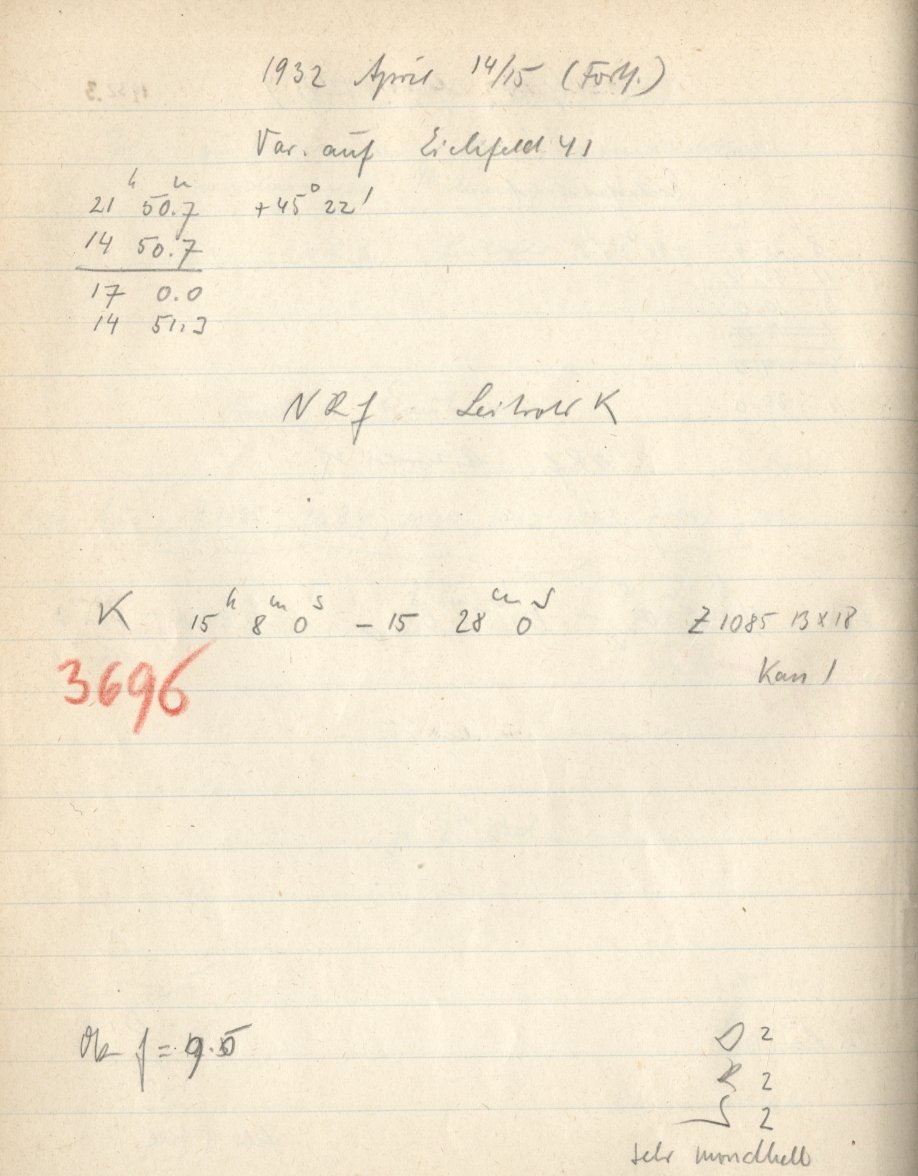 1932 April 14/15 (Forts.)
Var. auf Eichfeld 41
21 h 50.7 m +45° 22'
14 50.7
17 0.0
14 51.3
NRf Leitrohr K
K 15 h 8 m 0 s – 15 28 m 0 s Z 1085 13x18
3696
Kass 1
Ok f = 9.5
D 2
R 2
S 2
sehr mondhell